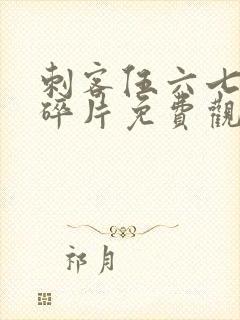 刺客伍六七
碎片免費觀
祁月